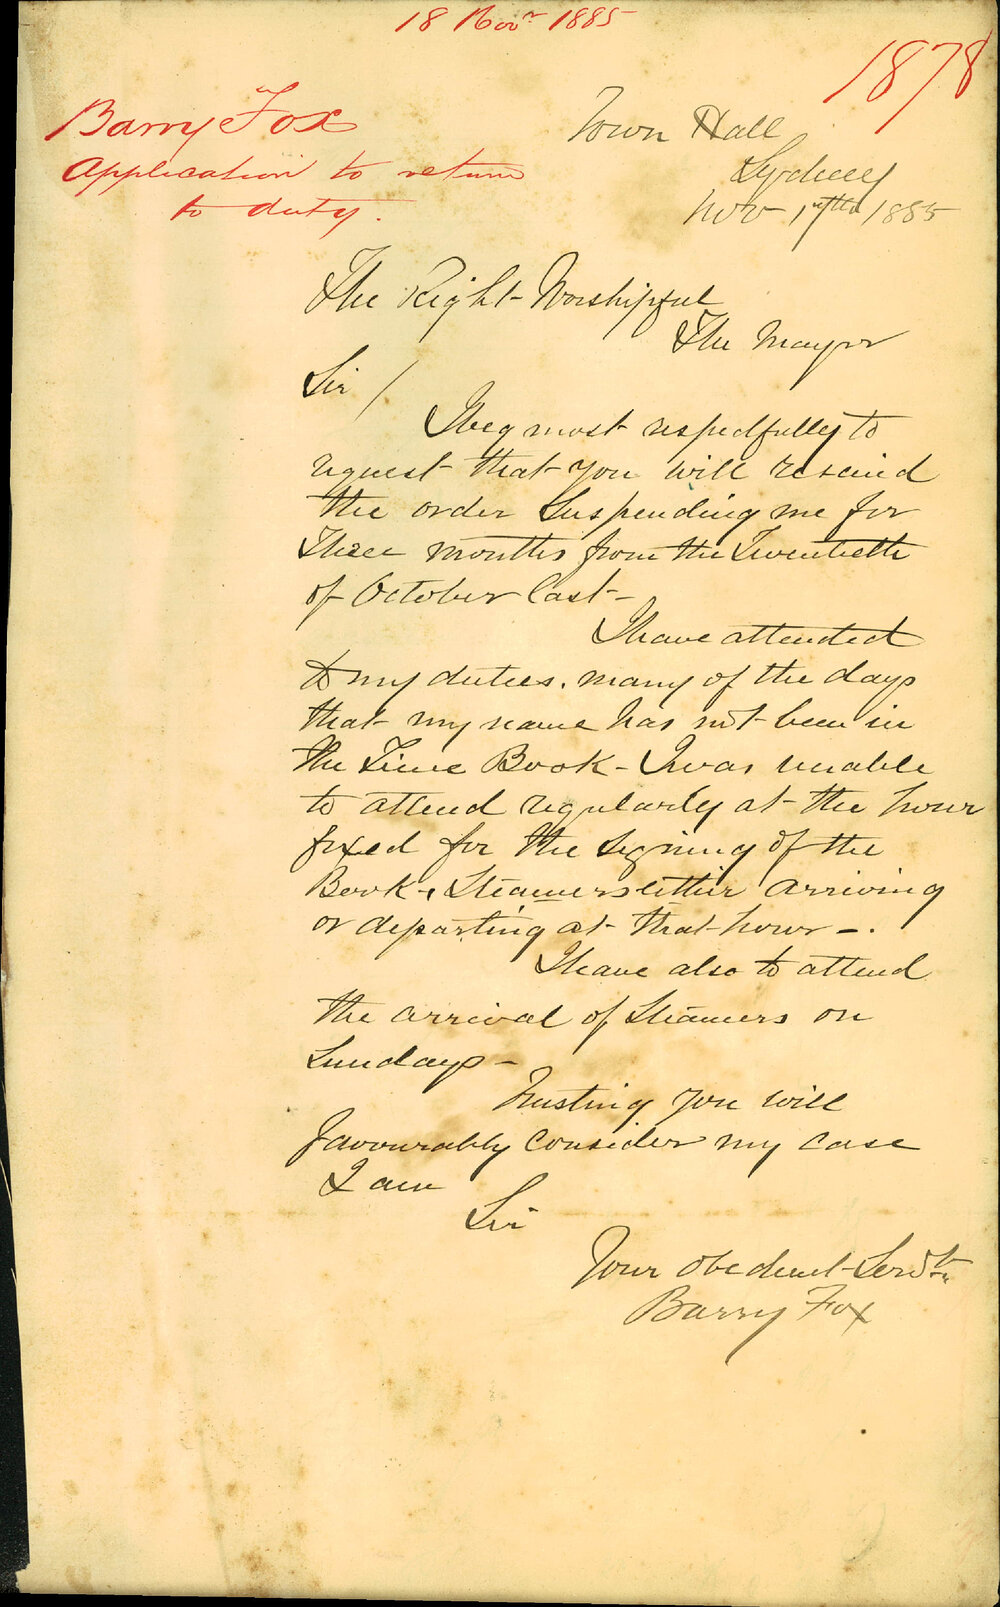 18 Novr 1885
1878
Barry Fox
Application to return
to duty.
Town Hall
Sydney
Nov 17th 1885
The Right Worshipful
The Mayor
Sir /
I beg most respectfully to
request that you will rescind
the order suspending me for
Three months from the Twentieth
of October last -
I have attended
to my duties. many of the days
that my name has not been in
the Time Book - I was unable
to attend regularly at the hour
fixed for the signing of the
Book. Steamers either arriving
or departing at that hour -.
I have also to attend
the arrival of Steamers on
Sundays -
Trusting you will
favourably consider my case
I am
Sir
Your obedient Servt
Barry Fox